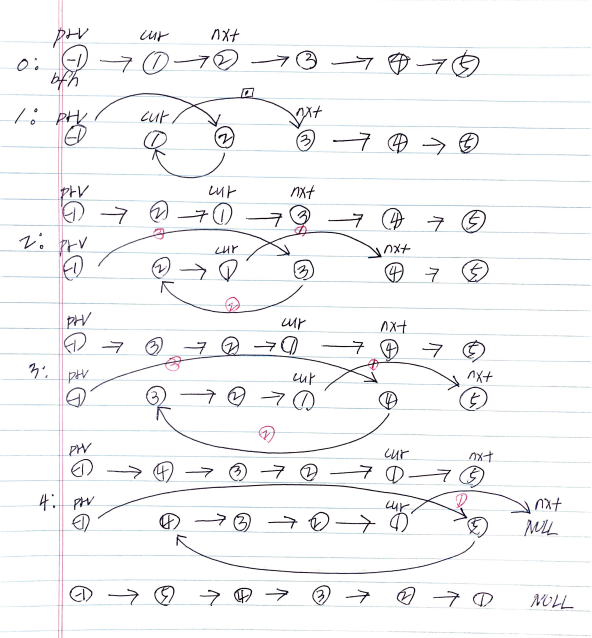 prv cur nxt
0: -1 → 1 → 2 → 3 → 4 → 5
bfh
1: prv cur nxt
-1 1 2 3 → 4 → 5
prv cur nxt
-1 → 2 → 1 → 3 → 4 → 5
3 1
2: prv cur nxt
-1 2 → 1 3 4 → 5
2
prv cur nxt
-1 → 3 → 2 → 1 → 4 → 5
3 1
3: prv cur nxt
-1 3 → 2 → 1 4 5
2
cur nxt
-1 → 4 → 3 → 2 → 1 → 5
4: prv cur 1 nxt
-1 4 → 3 → 2 → 1 5 NULL
-1 → 5 → 4 → 3 → 2 → 1 NULL